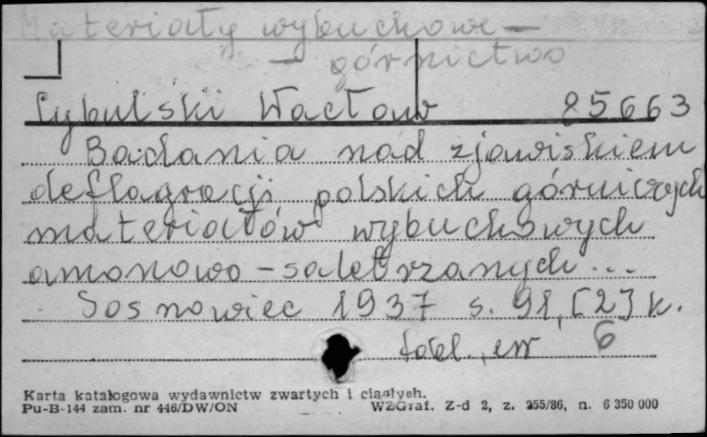 Materiały wybuchowe –
– górnictwo
Cybulski Wacław 85663
Badania nad zjawiskiem
deflagracji polskich górniczych
materiałów wybuchowych
amonowo-saletrzanych...
Sosnowiec 1937 s. 91, [2] k.
tabl., err 6
Karta katalogowa wydawnictw zwartych i ciągłych.
Pu-B-144 zam. nr 446/DW/ON WZGraf. Z-d 2, z. 255/86, n. 6 350 000